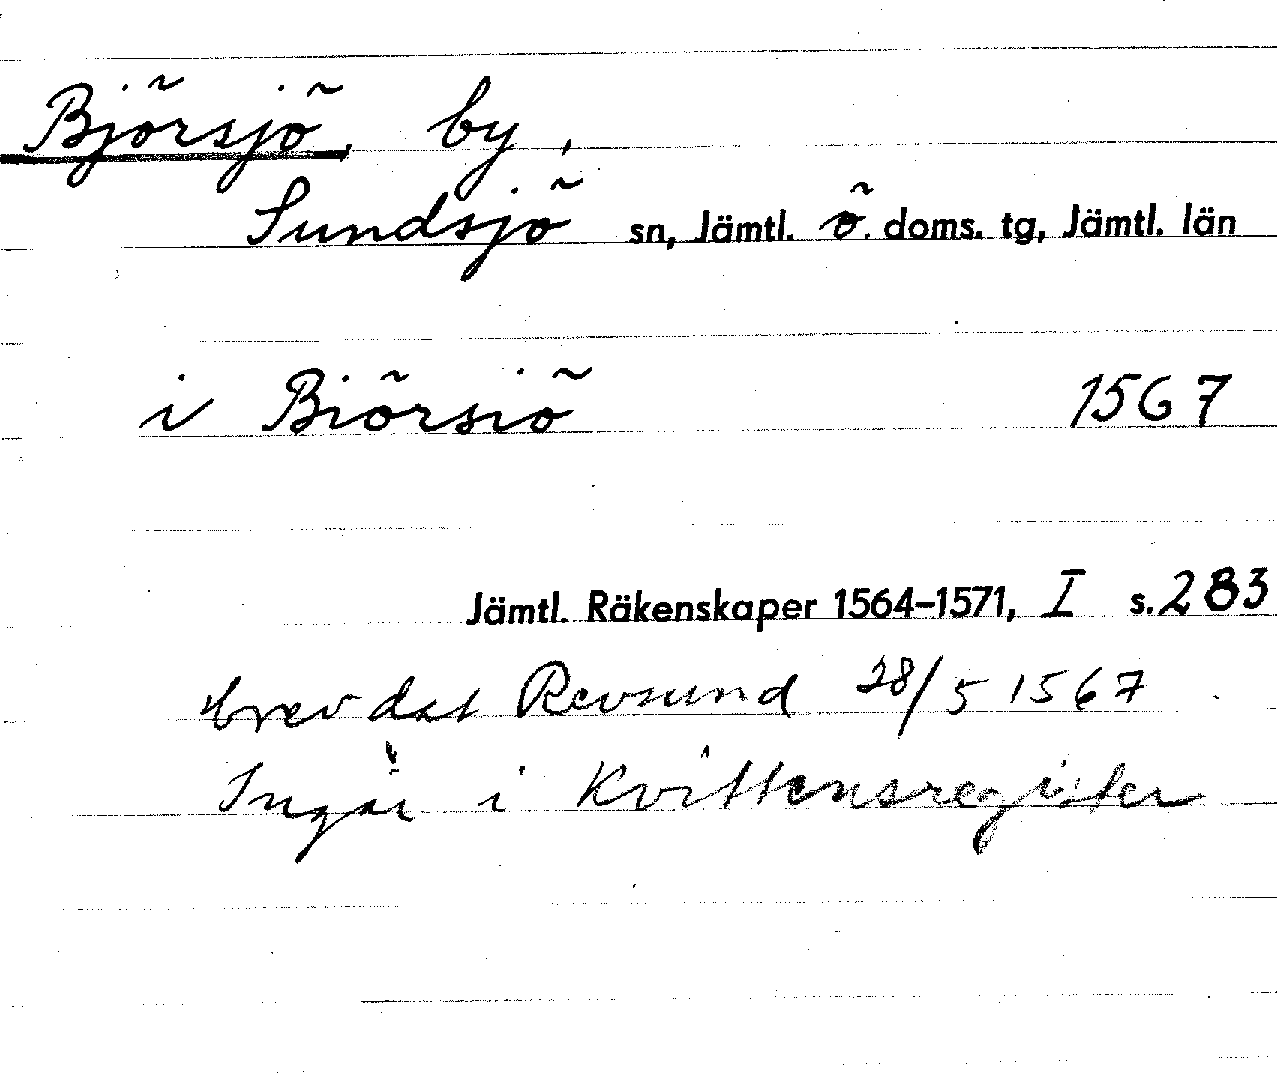 Björsjö, by,
Sundsjö sn, Jämtl. ö. doms. tg, Jämtl. län
i Biörsiö 1567
Jämtl. Räkenskaper 1564–1571, I s. 283
brev dat Revsund 28/5 1567
Ingår i Kvittensregister